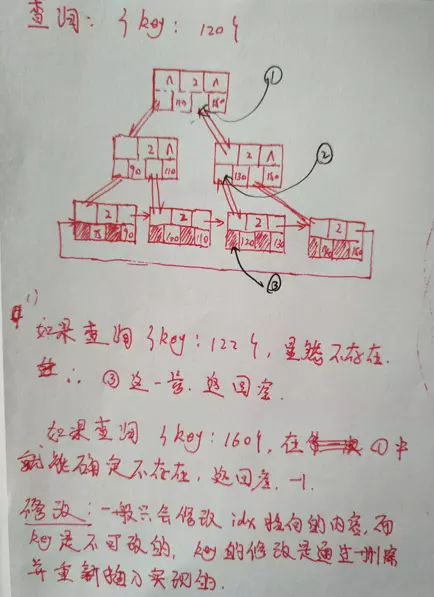 查询：{key：120}
①
Λ 2 Λ
110 150
②
2 Λ
90 110
2 Λ
130 150
2
90
2
100 110
2
120 130
2
150
③
1)
如果查询 {key：122}，显然不存在.
∴ ③这一层，返回空.
如果查询 {key：160}，在①中
就能确定不存在，返回空，-1.
修改：一般只会修改 idx 指向的内容，而
key是不可改的，key的修改是通过删除
并重新插入实现的.